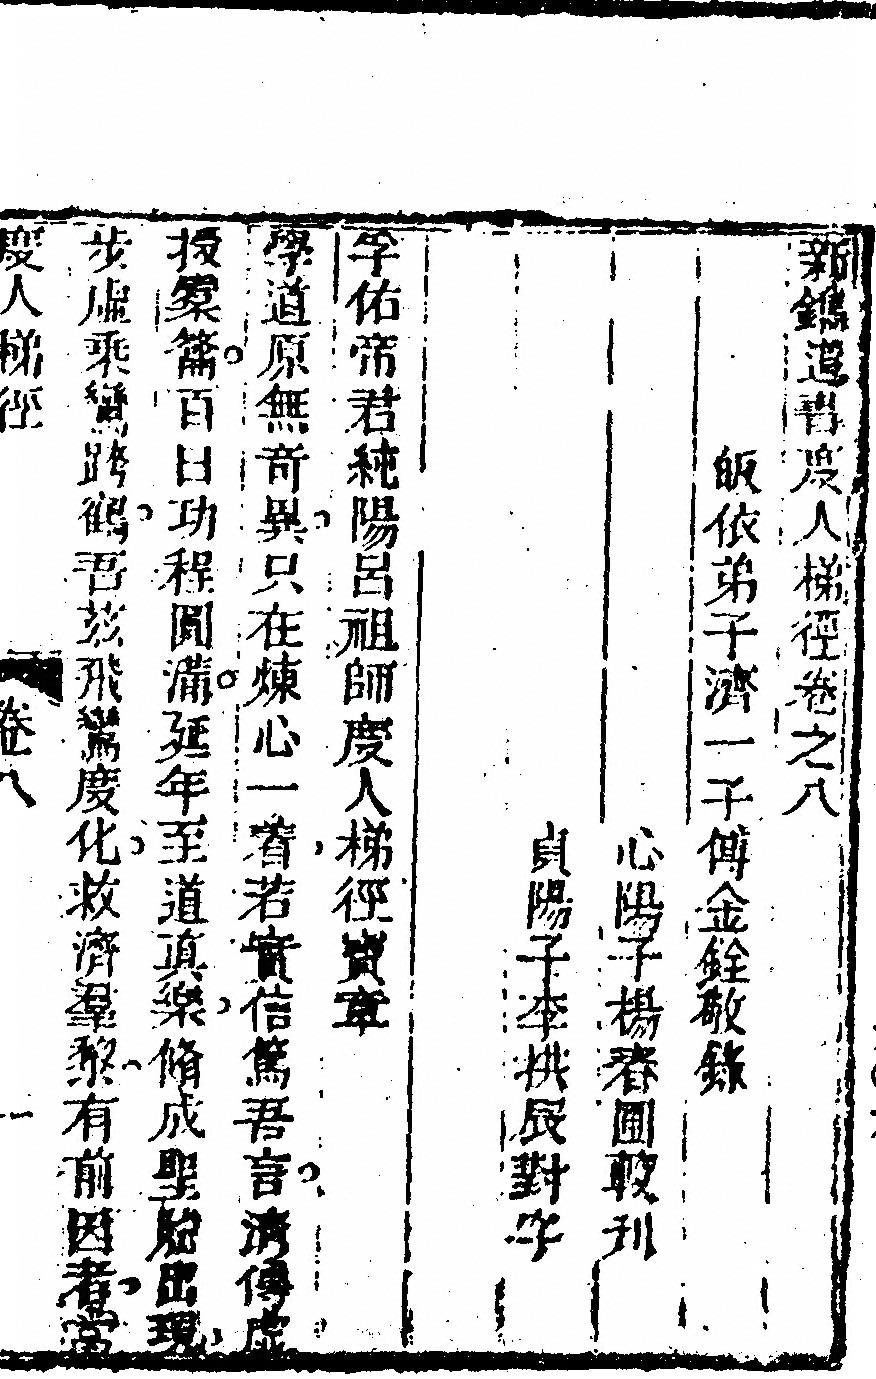 新鐫道書度人梯徑卷之八
皈依弟子濟一子傅金銓敬錄
心陽子楊春圃較刊
貞陽子李拱辰對字
孚佑帝君純陽呂祖師度人梯徑寶章
學道原無奇異只在煉心一著若實信篤吾言濟傅虛
授橐籥百日功程圓滿延年至道真樂脩成聖胎出現
步虛乘鸞跨鶴吾茲飛鸞度化救濟羣黎有前因者當
度人梯徑
卷八
一